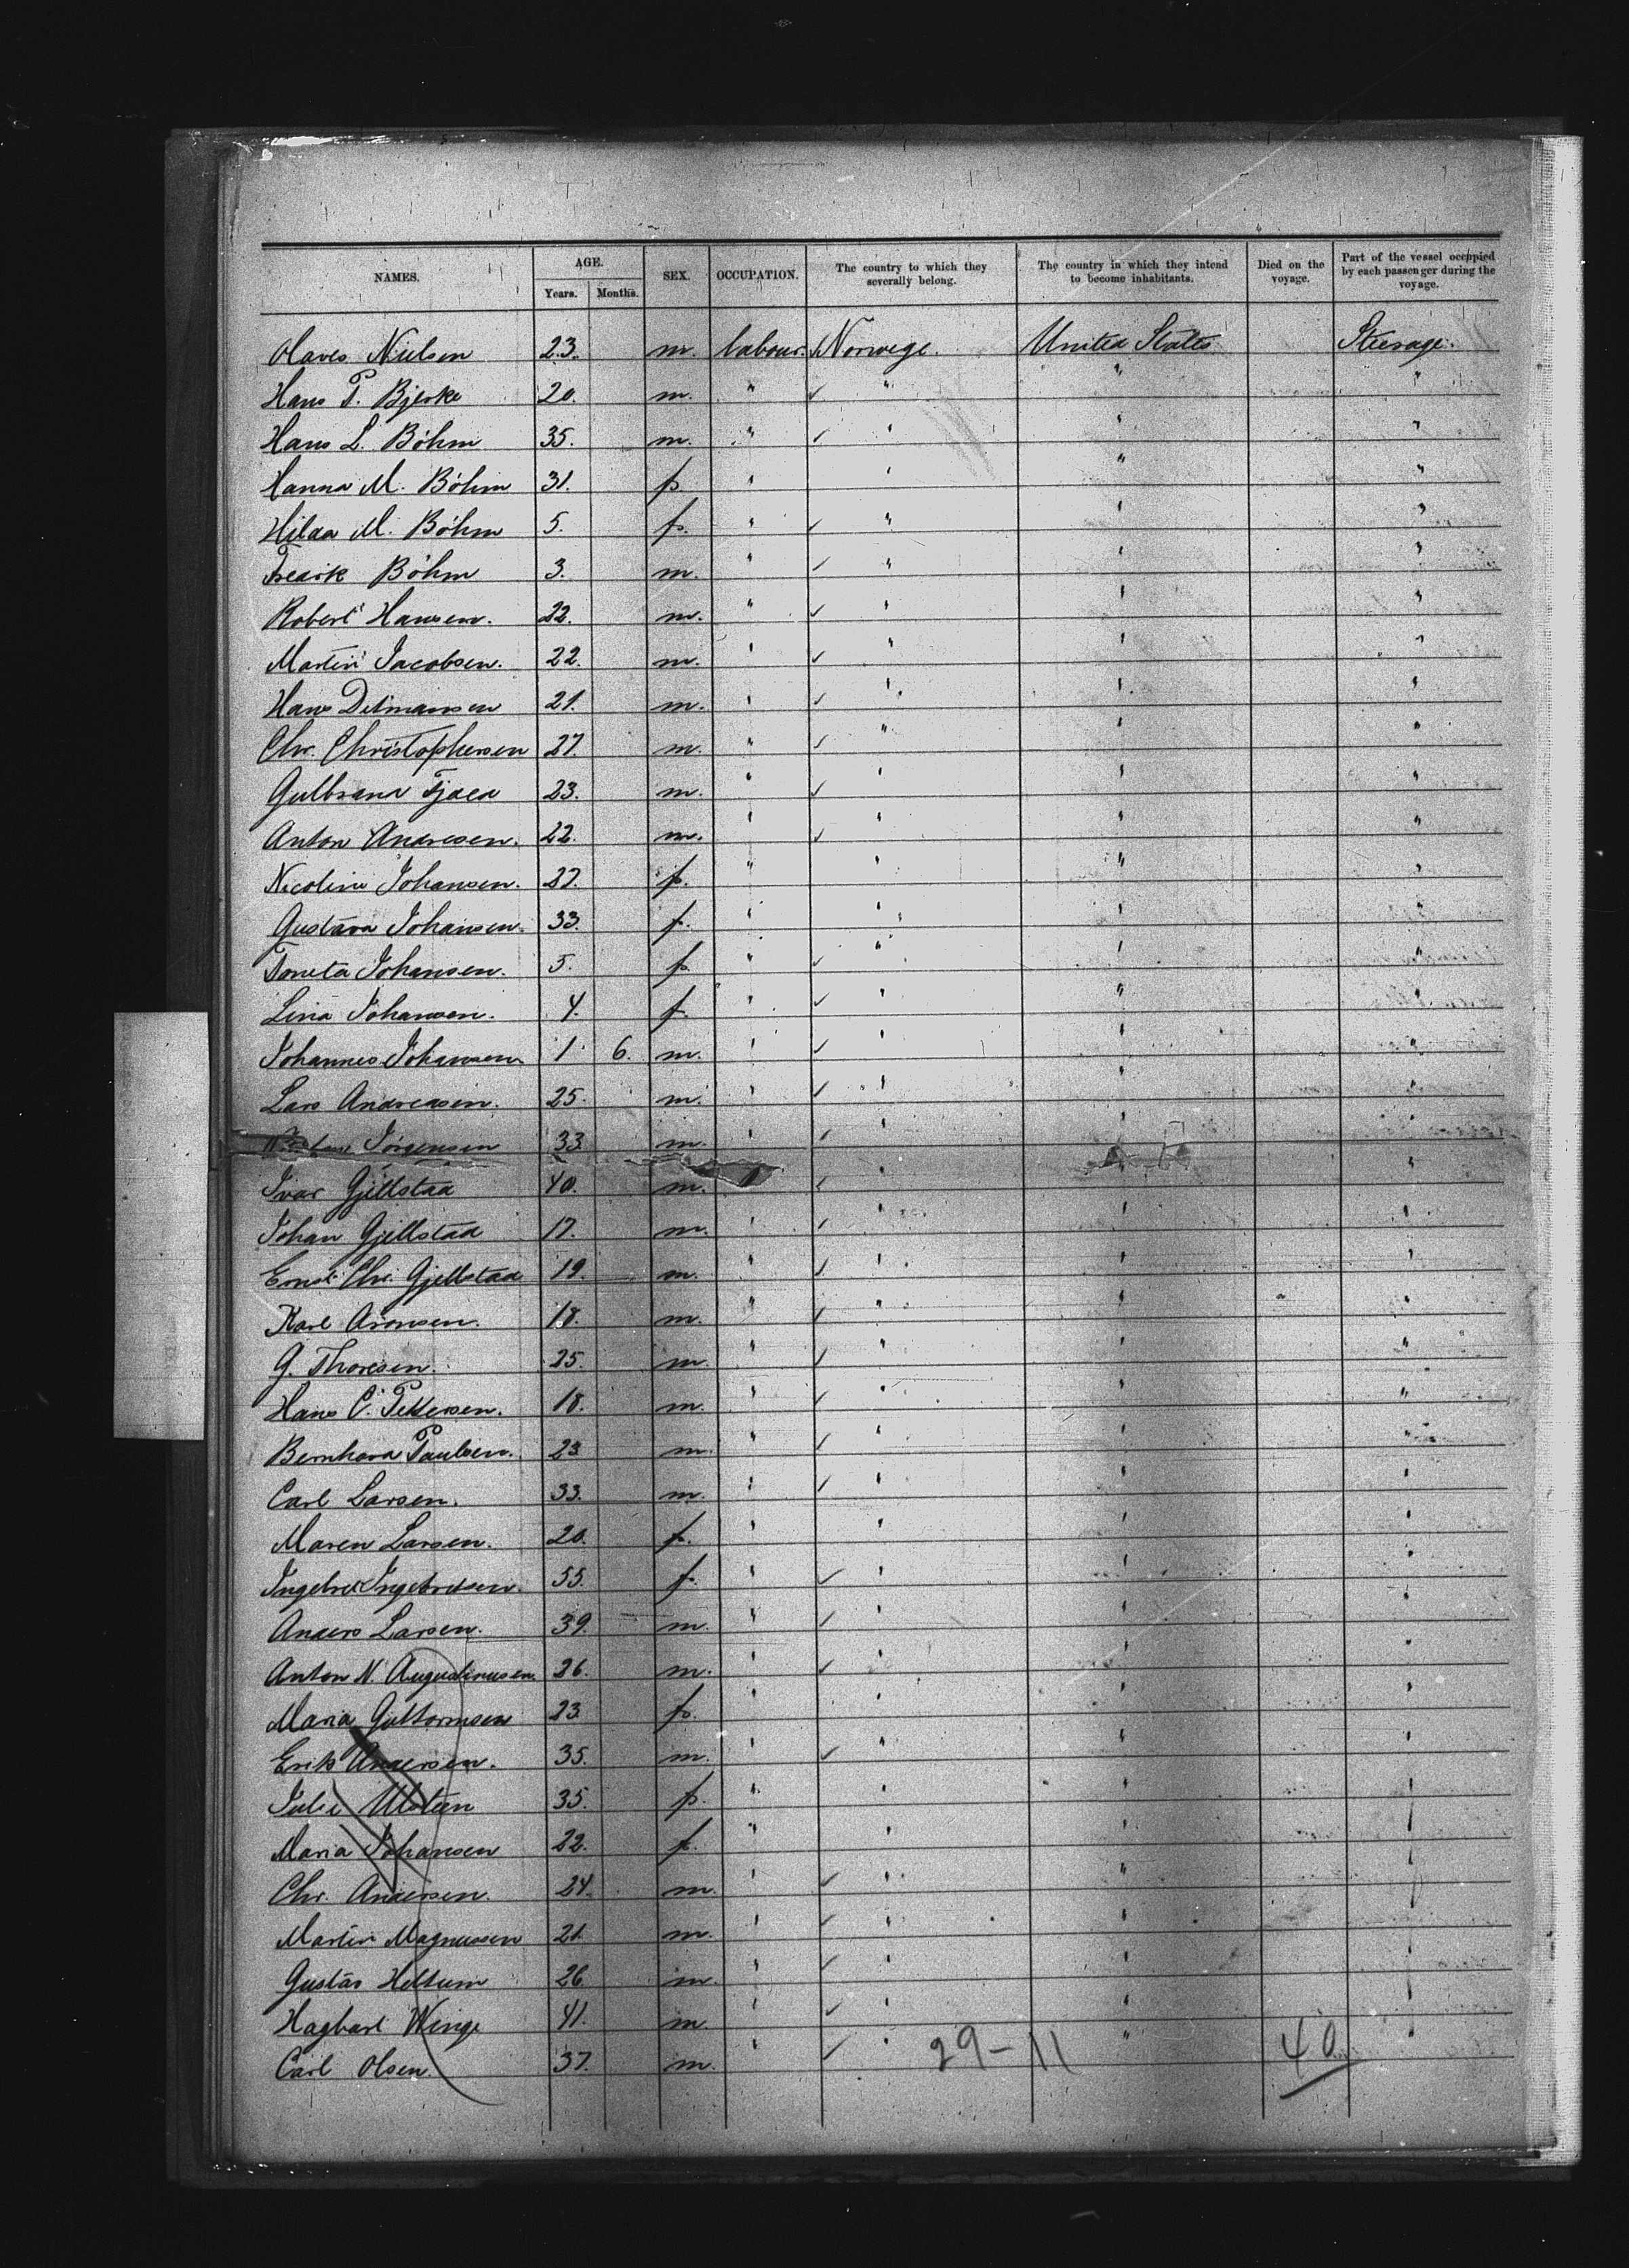 NAMES. AGE. SEX. OCCUPATION. The country to which they severally belong. The country in which they intend to become inhabitants. Died on the voyage. Part of the vessel occupied by each passenger during the voyage.
Years. Months.
Olaves Nielsen 23. m. labour. Norwege. United States Steerage.
Hans P. Bjerke 20. m. " " " "
Hans L. Böhm 35. m. " " " "
Hanna M. Böhm 31. f. " " " "
Hilda M. Böhm 5. f. " " " "
Fredrik Böhm 3. m. " " " "
Robert Hansen. 22. m. " " " "
Martin Jacobsen. 22. m. " " " "
Hans Ditmansen 21. m. " " " "
Chr. Christophersen 27. m. " " " "
Gulbrand 23. m. " " " "
Anton Andresen. 22. m. " " " "
Nicoline Johansen. 27. f. " " " "
Gustava Johansen. 33. f. " " " "
Johansen. 5. f. " " " "
Lina Johansen. 4. f. " " " "
Johannes Johansen 1 6. m. " " " "
Lars Andreasen. 25. m. " " " "
Jörgensen 33. m. " " " "
Ivar Gjellstad 40. m. " " "
Johan Gjellstad 17. m. " " " "
Ernst Chr. Gjellstad 19. m. " " " "
Karl Aronsen. 18. m. " " " "
G. Thoresen. 25. m. " " " "
Hans C. Pettersen. 18. m. " " " "
Bernhard Paulsen. 23 m. " " " "
Carl Larsen. 33. m. " " " "
Maren Larsen. 20. f. " " " "
Ingebret Ingebretsen. 55. f. " " " "
Anders Larsen. 39. m. " " " "
Anton N. Augustinusen. 26. m. " " " "
Maria Guttormsen 23. f. " " " "
Erik Andersen. 35. m. " " " "
Julie Ulsteen 35. f. " " " "
Maria Johansen 22. f. " " " "
Chr. Andersen. 24. m. " " " "
Martin Magnussen 21. m. " " " "
Gustav Heltum 26. m. " " " "
Hagbart Winge 41. m. " " " "
Carl Olsen. 37. m. " " 29-11 " 40 "